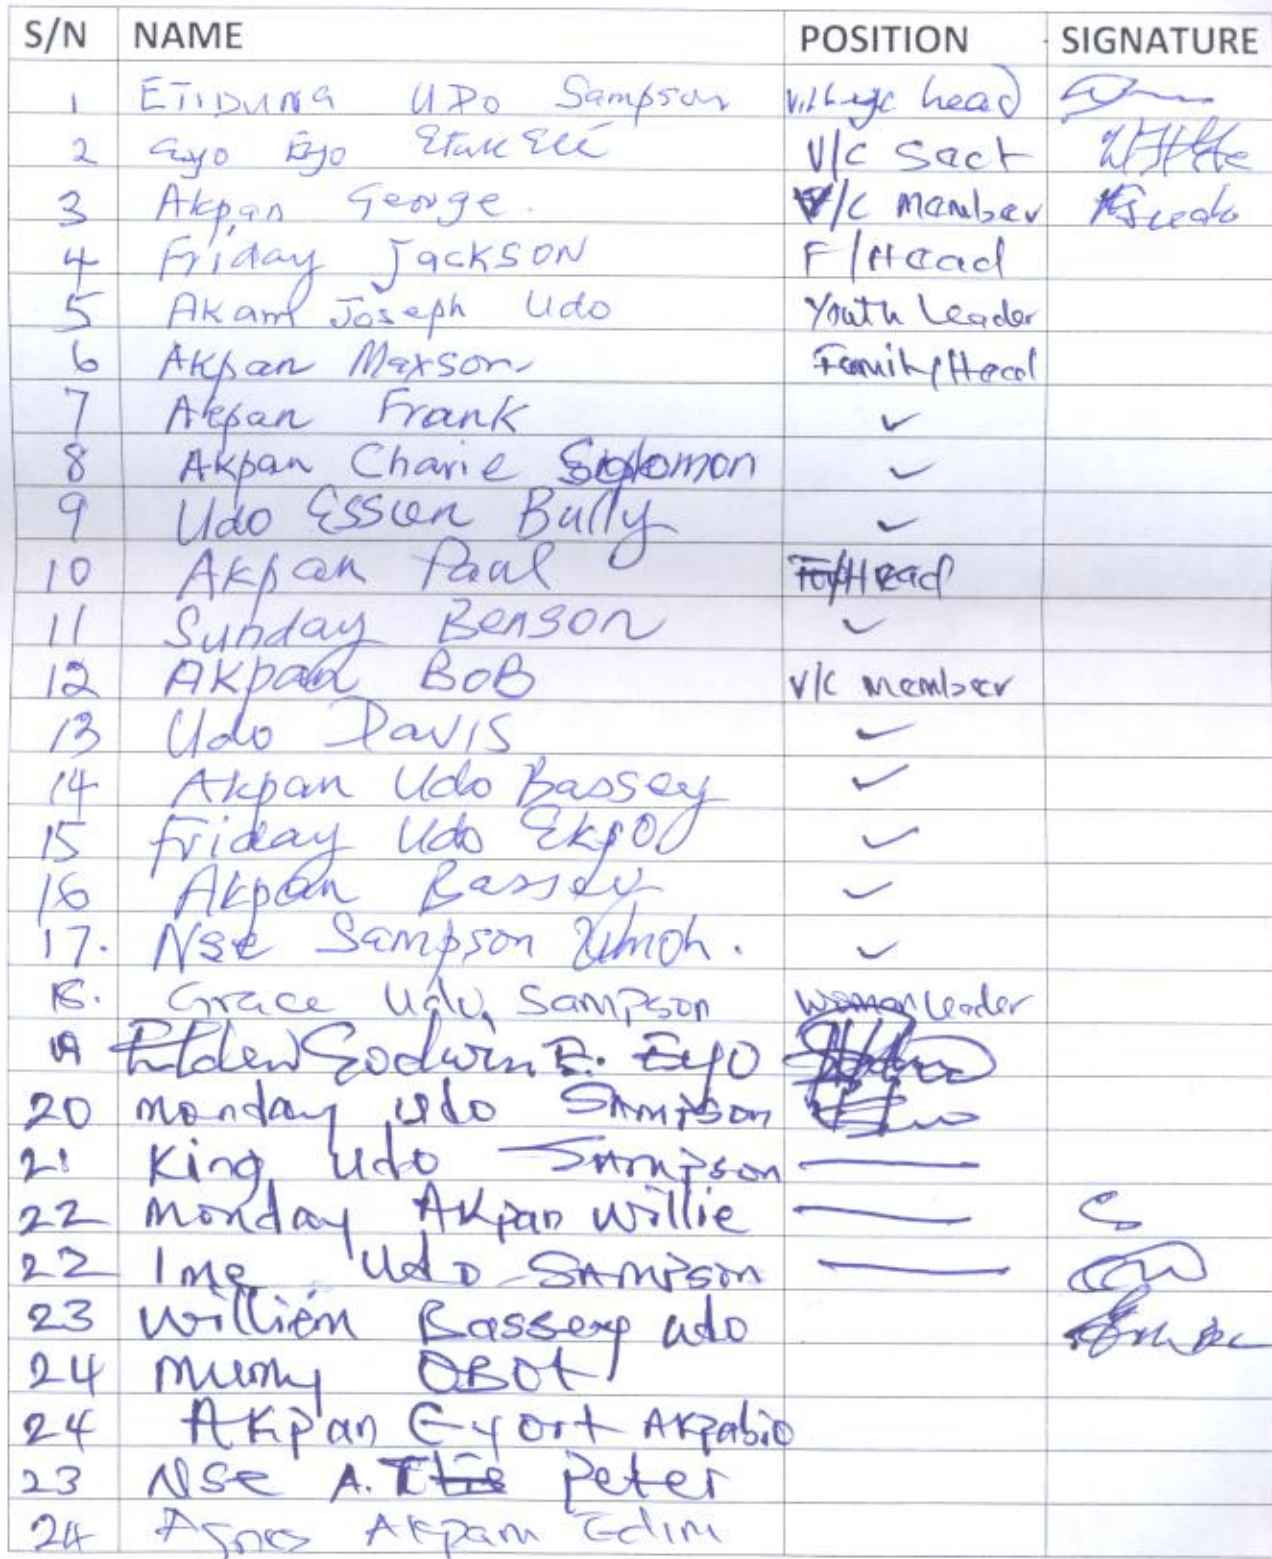 S/N NAME POSITION SIGNATURE
1 ETIDUNG UDO Sampson village head
2 Eyo Eyo Etak Ele V/C Sact
3 Akpan George. V/C member
4 Friday Jackson F/Head
5 Akam Joseph Udo Youth Leader
6 Akpan Maxson Family Head
7 Akpan Frank ✓
8 Akpan Charie Solomon ✓
9 Udo Essien Bully ✓
10 Akpan Paul F/Head
11 Sunday Benson ✓
12 Akpan BoB V/C member
13 Udo Davis ✓
14 Akpan Udo Bassey ✓
15 Friday Udo Ekpo ✓
16 Akpan Bassey ✓
17. Nse Sampson Umoh. ✓
18. Grace Udo Sampson Woman Leader
19 Elder Godwin E. Eyo
20 monday Udo Sampson
21 King Udo Sampson —
22 monday Akpan Willie —
22 Ime Udo Sampson —
23 William Bassey udo
24 OBOT
24 Akpan Eyort Akpabio
23 NSE A. Peter
24 Agnes Akpam Edim